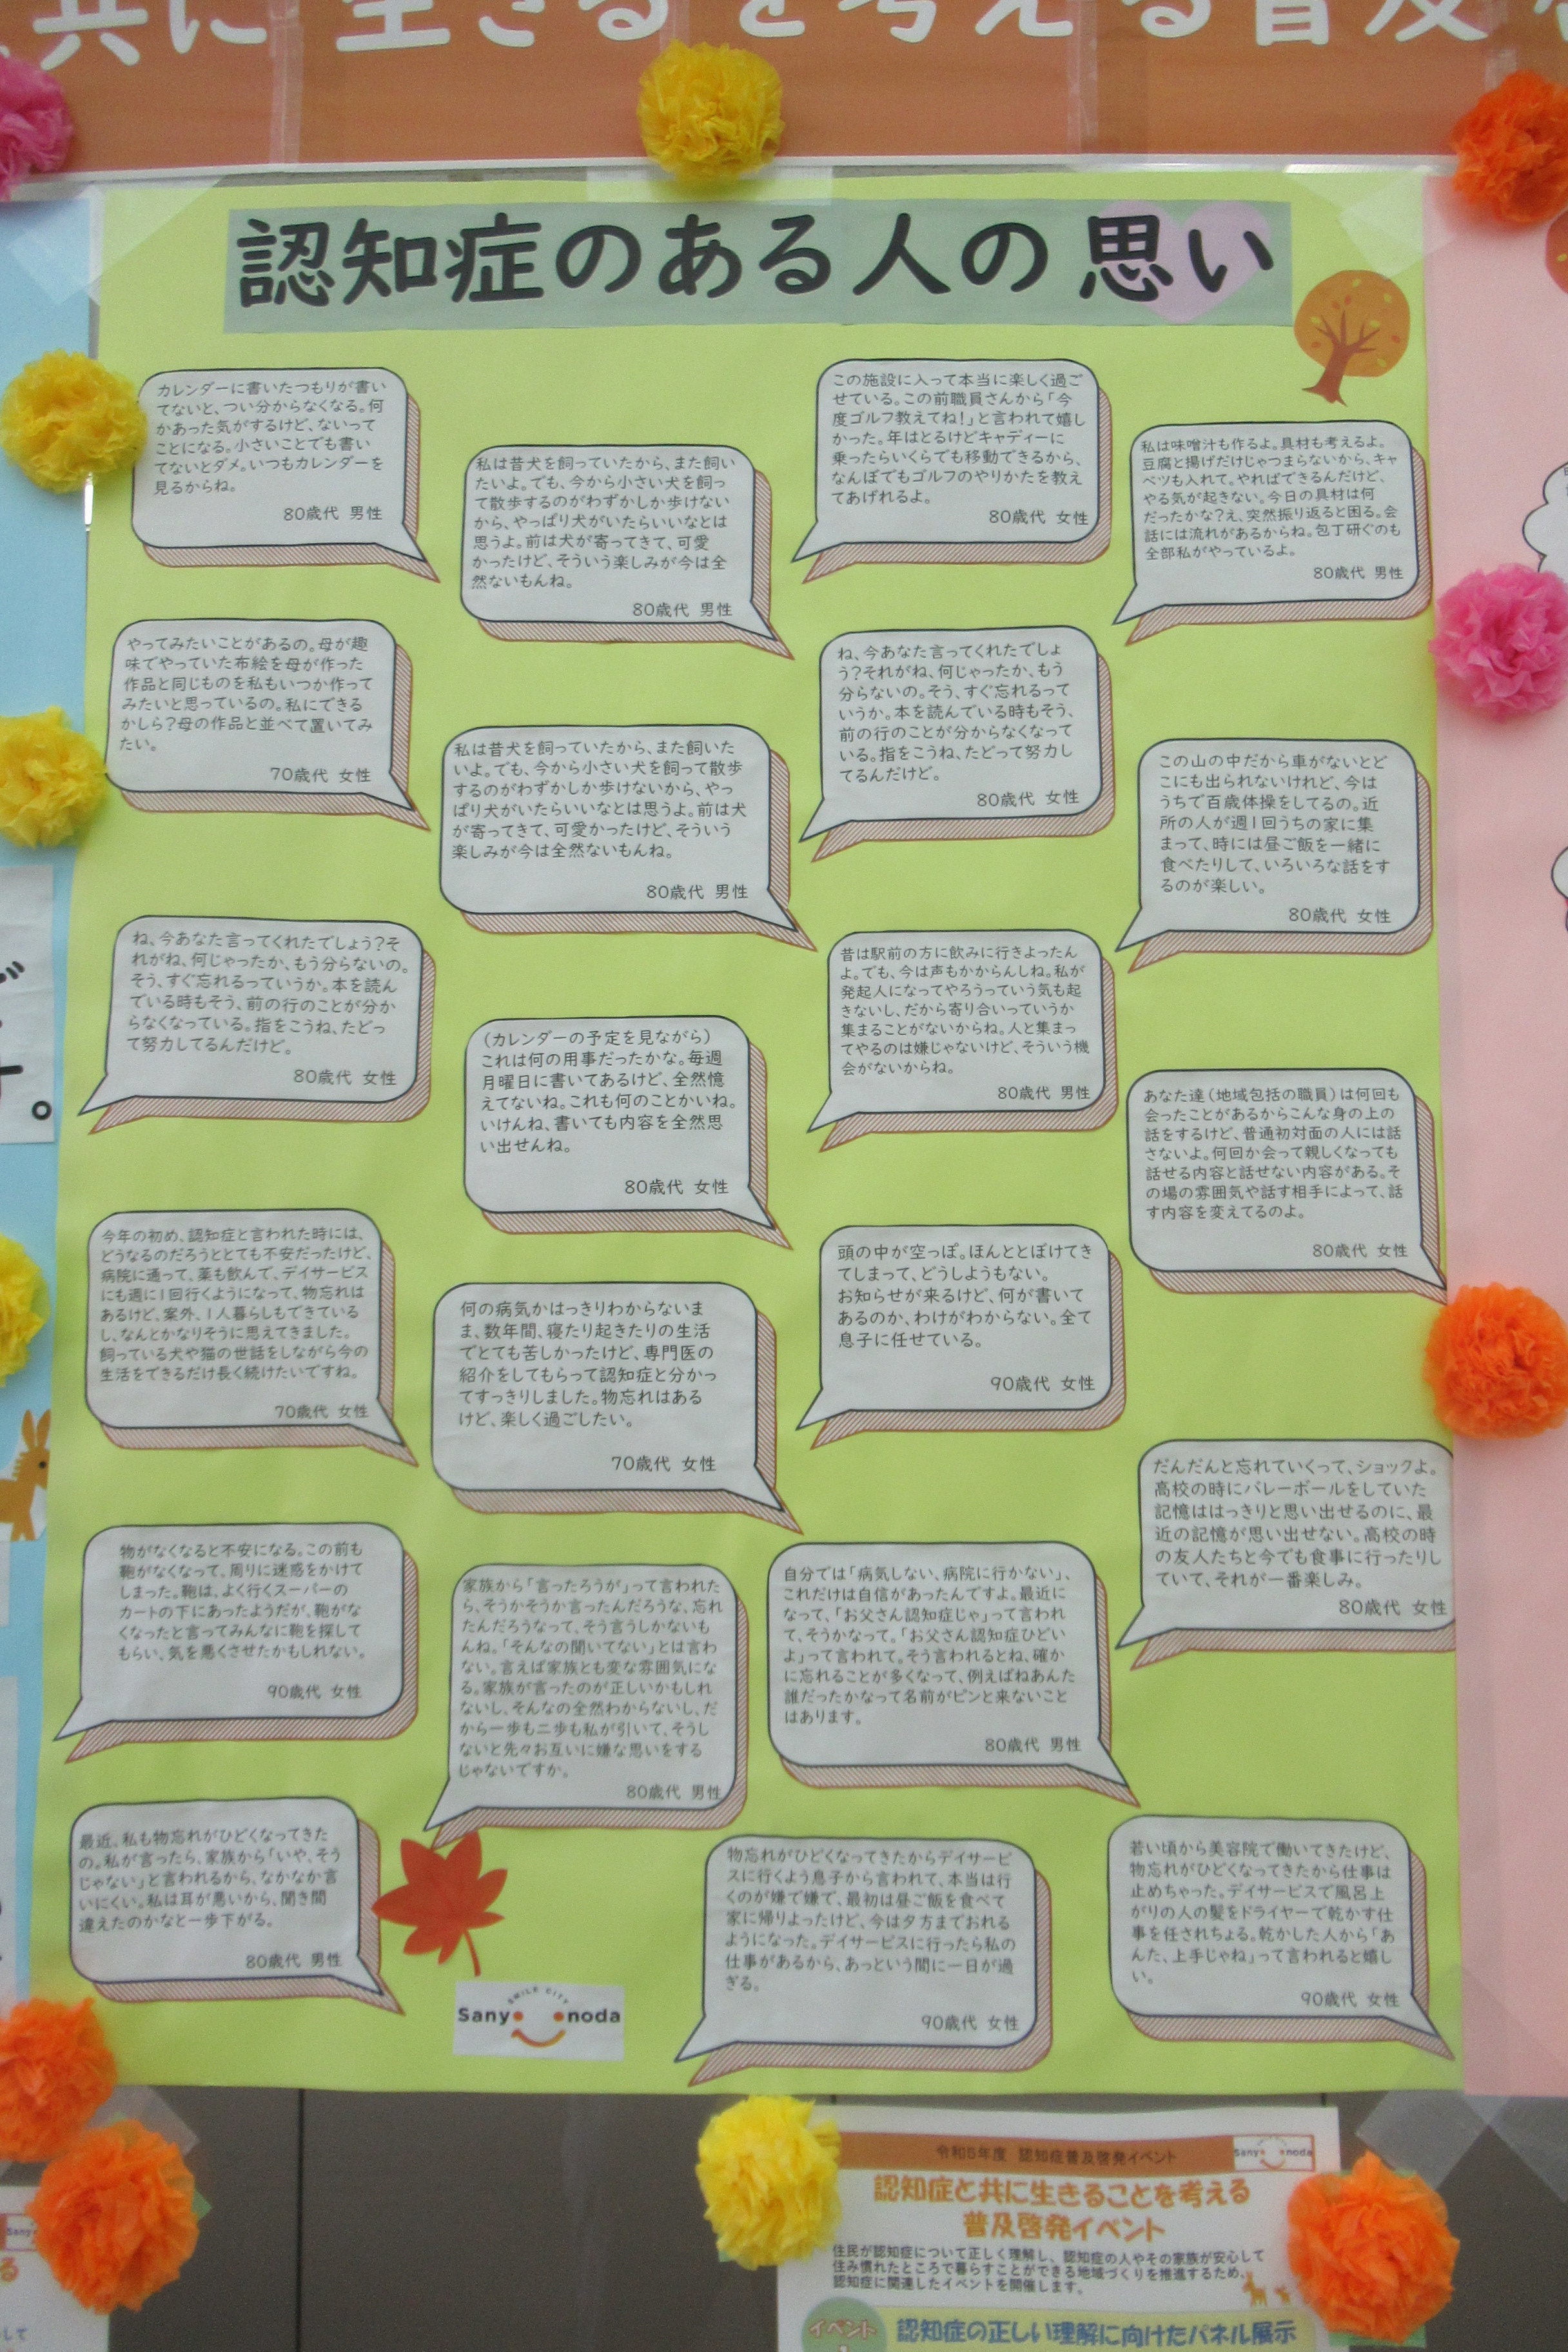 共に生きるを考える普及
認知症のある人の思い
カレンダーに書いたつもりが書い
てないと、つい分からなくなる。何
かあった気がするけど、ないって
ことになる。小さいことでも書い
てないとダメ。いつもカレンダーを
見るからね。
80歳代 男性
やってみたいことがあるの。母が趣
味でやっていた布絵を母が作った
作品と同じものを私もいつか作って
みたいと思っているの。私にできる
かしら?母の作品と並べて置いてみ
たい。
70歳代 女性
ね、今あなた言ってくれたでしょう?そ
れがね、何じゃったか、もう分らないの。
そう、すぐ忘れるっていうか。本を読ん
でいる時もそう、前の行のことが分か
らなくなっている。指をこうね、たどっ
て努力してるんだけど。
80歳代 女性
今年の初め、認知症と言われた時には、
どうなるのだろうととても不安だったけど、
病院に通って、薬も飲んで、デイサービス
にも週に1回行くようになって、物忘れは
あるけど、案外、1人暮らしもできている
し、なんとかなりそうに思えてきました。
飼っている犬や猫の世話をしながら今の
生活をできるだけ長く続けたいですね。
70歳代 女性
物がなくなると不安になる。この前も
鞄がなくなって、周りに迷惑をかけて
しまった。鞄は、よく行くスーパーの
カートの下にあったようだが、鞄がな
くなったと言ってみんなに鞄を探して
もらい、気を悪くさせたかもしれない。
90歳代 女性
最近、私も物忘れがひどくなってきた
の。私が言ったら、家族から「いや、そう
じゃない」と言われるから、なかなか言
いにくい。私は耳が悪いから、聞き間
違えたのかなと一歩下がる。
80歳代 男性
私は昔犬を飼っていたから、また飼い
たいよ。でも、今から小さい犬を飼っ
て散歩するのがわずかしか歩けない
から、やっぱり犬がいたらいいなとは
思うよ。前は犬が寄ってきて、可愛
かったけど、そういう楽しみが今は全
然ないもんね。
80歳代 男性
私は昔犬を飼っていたから、また飼いた
いよ。でも、今から小さい犬を飼って散歩
するのがわずかしか歩けないから、やっ
ぱり犬がいたらいいなとは思うよ。前は犬
が寄ってきて、可愛かったけど、そういう
楽しみが今は全然ないもんね。
80歳代 男性
(カレンダーの予定を見ながら)
これは何の用事だったかな。毎週
月曜日に書いてあるけど、全然憶
えてないね。これも何のことかいね。
いけんね、書いても内容を全然思
い出せんね。
80歳代 女性
何の病気かはっきりわからないま
ま、数年間、寝たり起きたりの生活
でとても苦しかったけど、専門医の
紹介をしてもらって認知症と分かっ
てすっきりしました。物忘れはある
けど、楽しく過ごしたい。
70歳代 女性
家族から「言ったろうが」って言われた
ら、そうかそうか言ったんだろうな、忘れ
たんだろうなって、そう言うしかないも
んね。「そんなの聞いてない」とは言わ
ない。言えば家族とも変な雰囲気にな
る。家族が言ったのが正しいかもしれ
ないし、そんなの全然わからないし、だ
から一歩も二歩も私が引いて、そうし
ないと先々お互いに嫌な思いをする
じゃないですか。
80歳代 男性
SMILE CITY
Sanyo onoda
この施設に入って本当に楽しく過ご
せている。この前職員さんから「今
度ゴルフ教えてね!」と言われて嬉し
かった。年はとるけどキャディーに
乗ったらいくらでも移動できるから、
なんぼでもゴルフのやりかたを教え
てあげれるよ。
80歳代 女性
ね、今あなた言ってくれたでしょ
う?それがね、何じゃったか、もう
分らないの。そう、すぐ忘れるって
いうか。本を読んでいる時もそう、
前の行のことが分からなくなって
いる。指をこうね、たどって努力し
てるんだけど。
80歳代 女性
昔は駅前の方に飲みに行きよったん
よ。でも、今は声もかからんしね。私が
発起人になってやろうっていう気も起
きないし、だから寄り合いっていうか
集まることがないからね。人と集まっ
てやるのは嫌じゃないけど、そういう機
会がないからね。
80歳代 男性
頭の中が空っぽ。ほんととぼけてき
てしまって、どうしようもない。
お知らせが来るけど、何が書いて
あるのか、わけがわからない。全て
息子に任せている。
90歳代 女性
自分では「病気しない、病院に行かない」、
これだけは自信があったんですよ。最近に
なって、「お父さん認知症じゃ」って言われ
て、そうかなって。「お父さん認知症ひどい
よ」って言われて。そう言われるとね、確か
に忘れることが多くなって、例えばねあんた
誰だったかなって名前がピンと来ないこと
はあります。
80歳代 男性
物忘れがひどくなってきたからデイサービ
スに行くよう息子から言われて、本当は行
くのが嫌で嫌で、最初は昼ご飯を食べて
家に帰りよったけど、今は夕方までおれる
ようになった。デイサービスに行ったら私の
仕事があるから、あっという間に一日が過
ぎる。
90歳代 女性
私は味噌汁も作るよ。具材も考えるよ。
豆腐と揚げだけじゃつまらないから、キャ
ベツも入れて。やればできるんだけど、
やる気が起きない。今日の具材は何
だったかな?え、突然振り返ると困る。会
話には流れがあるからね。包丁研ぐのも
全部私がやっているよ。
80歳代 男性
この山の中だから車がないとど
こにも出られないけれど、今は
うちで百歳体操をしてるの。近
所の人が週1回うちの家に集
まって、時には昼ご飯を一緒に
食べたりして、いろいろな話をす
るのが楽しい。
80歳代 女性
あなた達(地域包括の職員)は何回も
会ったことがあるからこんな身の上の
話をするけど、普通初対面の人には話
さないよ。何回か会って親しくなっても
話せる内容と話せない内容がある。そ
の場の雰囲気や話す相手によって、話
す内容を変えてるのよ。
80歳代 女性
だんだんと忘れていくって、ショックよ。
高校の時にバレーボールをしていた
記憶ははっきりと思い出せるのに、最
近の記憶が思い出せない。高校の時
の友人たちと今でも食事に行ったりし
ていて、それが一番楽しみ。
80歳代 女性
若い頃から美容院で働いてきたけど、
物忘れがひどくなってきたから仕事は
止めちゃった。デイサービスで風呂上
がりの人の髪をドライヤーで乾かす仕
事を任されちょる。乾かした人から「あ
んた、上手じゃね」って言われると嬉し
い。
90歳代 女性
令和5年度 認知症普及啓発イベント
Sanyo onoda
認知症と共に生きることを考える
普及啓発イベント
住民が認知症について正しく理解し、認知症の人やその家族が安心して
住み慣れたところで暮らすことができる地域づくりを推進するため、
認知症に関連したイベントを開催します。
イベント
認知症の正しい理解に向けたパネル展示